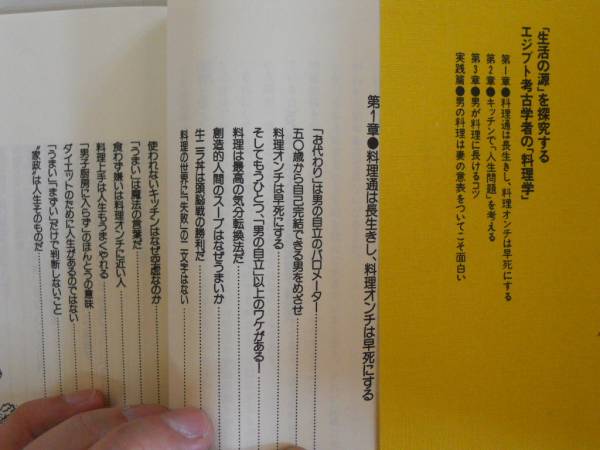 「生活の源」を探究する
エジプト考古学者の「料理学」
第1章●料理通は長生きし、料理オンチは早死にする
第2章●キッチンで、"人生問題"を考える
第3章●男が料理に長けるコツ
実践篇●男の料理は妻の意表をついてこそ面白い
第1章●料理通は長生きし、料理オンチは早死にする
「お代わり」は男の自立のバロメーター
五〇歳から自己完結できる男をめざせ
料理オンチは早死にする
そしてもうひとつ、「男の自立」以上のワケがある！
料理は最高の気分転換法だ
創造的人間のスープはなぜうまいか
牛ニラ丼は頭脳戦の勝利だ
料理の世界に「失敗」の二文字はない
使われないキッチンはなぜ空虚なのか
「うまい」は魔法の言葉だ
食わず嫌いは料理オンチに近い人
料理上手は人生もうまくやれる
「男子厨房に入らず」のほんとうの意味
ダイエットのために人生があるのではない
「うまい」「まずい」だけで判断しないこと
"家政"は人生そのものだ